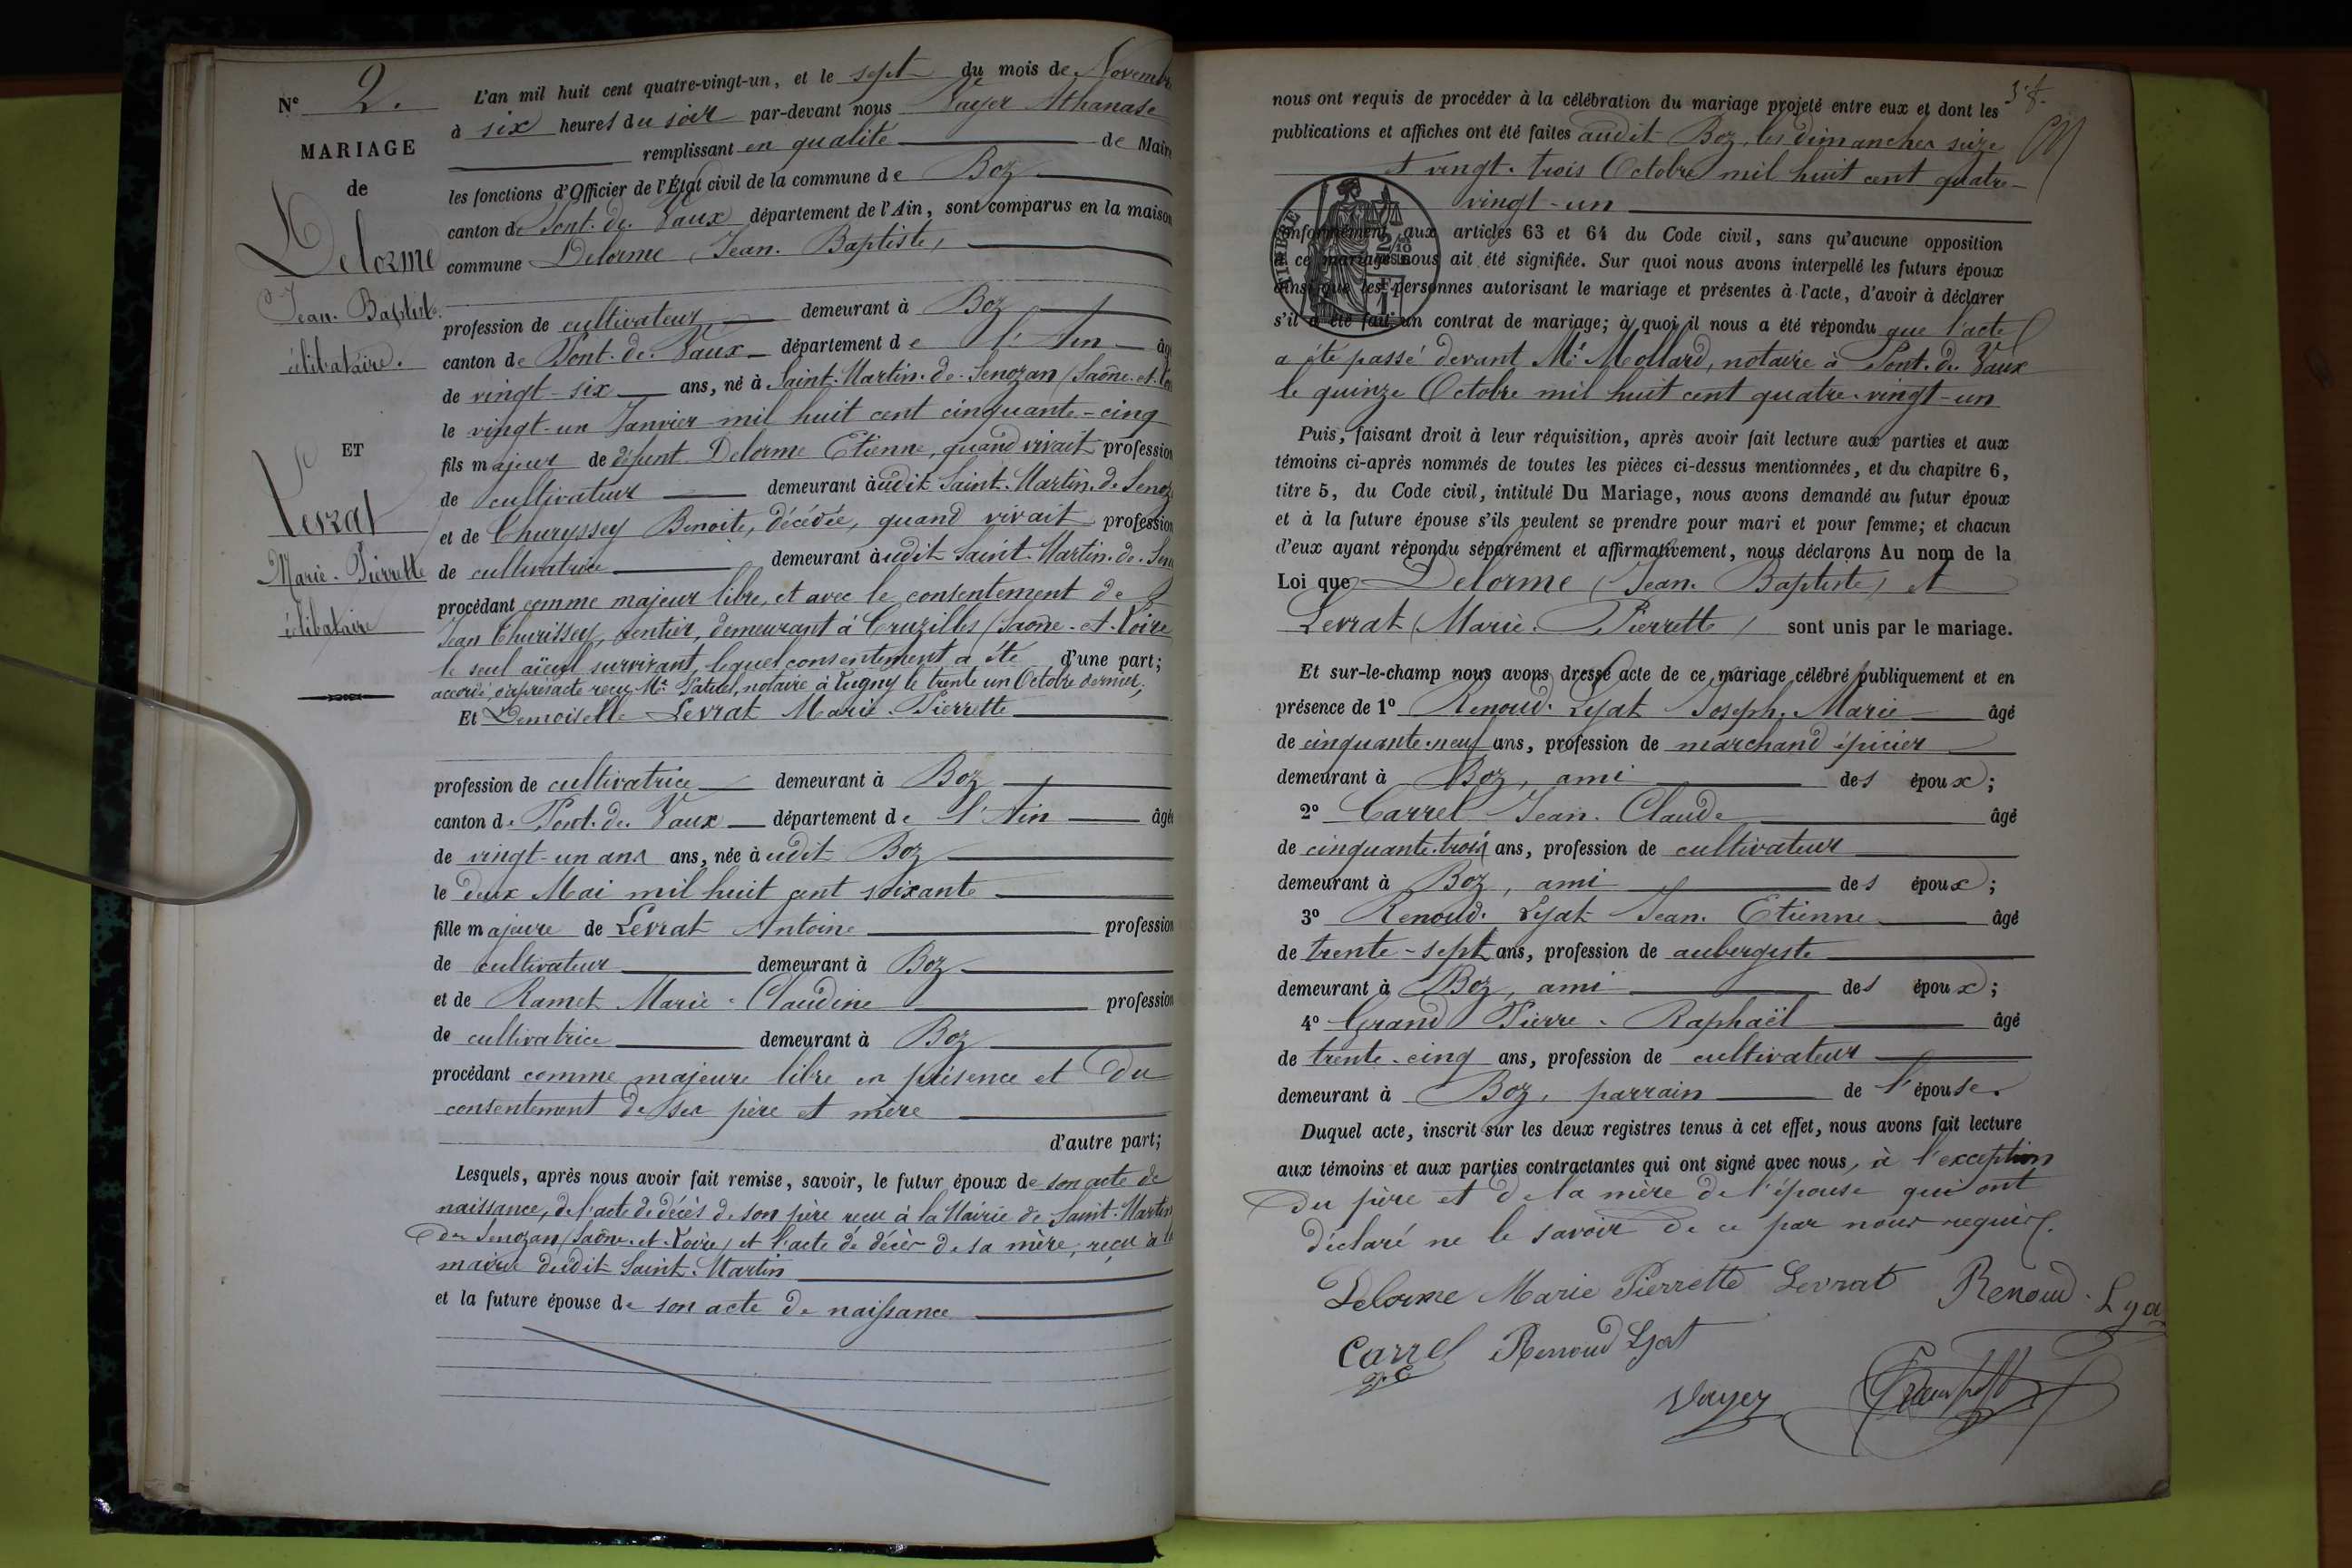 N° 2.
MARIAGE
de
Delorme
Jean-Baptiste
célibataire.
ET
Levrat
Marie-Pierrette
célibataire
L'an mil huit cent quatre-vingt-un, et le sept du mois de Novembre
à six heures du soir par-devant nous Vayer Athanase
remplissant en qualité de Maire
les fonctions d'Officier de l'État civil de la commune de Boz
canton de Pont-de-Vaux département de l'Ain, sont comparus en la maison
commune Delorme (Jean-Baptiste)
profession de cultivateur demeurant à Boz
canton de Pont-de-Vaux département de l'Ain âgé
de vingt-six ans, né à Saint-Martin-de-Senozan (Saône-et-Loire
le vingt-un Janvier mil huit cent cinquante-cinq
fils majeur de défunt Delorme Etienne, quand vivait profession
de cultivateur demeurant audit Saint-Martin-de-Senoz
et de Churyssey Benoite, décédée, quand vivait profession
de cultivatrice demeurant audit Saint-Martin-de-Sen
procédant comme majeur libre, et avec le consentement de
Jean Churissey, rentier, demeurant à Cruzilles (Saône-et-Loire
le seul aïeul survivant, lequel consentement a été d'une part;
accordé, d'après acte reçu Me notaire à Lugny le trente un Octobre dernier,
Et Demoiselle Levrat Marie-Pierrette
profession de cultivatrice demeurant à Boz
canton de Pont-de-Vaux département de l'Ain âgée
de vingt-un ans ans, née audit Boz
le deux Mai mil huit cent soixante
fille majeure de Levrat Antoine profession
de cultivateur demeurant à Boz
et de Ramet Marie-Claudine profession
de cultivatrice demeurant à Boz
procédant comme majeure libre en présence et du
consentement de ses père et mère
d'autre part;
Lesquels, après nous avoir fait remise, savoir, le futur époux de son acte de
naissance, de l'acte de décès de son père reçu à la Mairie de Saint-Martin
de Senozan (Saône-et-Loire) et l'acte de décès de sa mère, reçu à la
mairie dudit Saint-Martin
et la future épouse de son acte de naissance
nous ont requis de procéder à la célébration du mariage projeté entre eux et dont les
publications et affiches ont été faites audit Boz, les dimanches seize
et vingt-trois Octobre mil huit cent quatre-
vingt-un
TIMBRE
conformément aux articles 63 et 64 du Code civil, sans qu'aucune opposition
à ce mariage nous ait été signifiée. Sur quoi nous avons interpellé les futurs époux
ainsi que les personnes autorisant le mariage et présentes à l'acte, d'avoir à déclarer
s'il a été fait un contrat de mariage; à quoi il nous a été répondu que l'acte
a été passé devant Me Mollard, notaire à Pont-de-Vaux
le quinze Octobre mil huit cent quatre-vingt-un
Puis, faisant droit à leur réquisition, après avoir fait lecture aux parties et aux
témoins ci-après nommés de toutes les pièces ci-dessus mentionnées, et du chapitre 6,
titre 5, du Code civil, intitulé Du Mariage, nous avons demandé au futur époux
et à la future épouse s'ils veulent se prendre pour mari et pour femme; et chacun
d'eux ayant répondu séparément et affirmativement, nous déclarons Au nom de la
Loi que Delorme (Jean-Baptiste) et
Levrat (Marie-Pierrette) sont unis par le mariage.
Et sur-le-champ nous avons dressé acte de ce mariage célébré publiquement et en
présence de 1° Renoud-Lyat Joseph-Marie âgé
de cinquante-neuf ans, profession de marchand épicier
demeurant à Boz, ami des époux;
2° Carrel Jean-Claude âgé
de cinquante-trois ans, profession de cultivateur
demeurant à Boz, ami des époux;
3° Renoud-Lyat Jean-Etienne âgé
de trente-sept ans, profession de aubergiste
demeurant à Boz, ami des époux;
4° Grand Pierre-Raphaël âgé
de trente-cinq ans, profession de cultivateur
demeurant à Boz, parrain de l'épouse.
Duquel acte, inscrit sur les deux registres tenus à cet effet, nous avons fait lecture
aux témoins et aux parties contractantes qui ont signé avec nous, à l'exception
du père et de la mère de l'épouse qui ont
déclaré ne le savoir de ce par nous requis.
Delorme Marie Pierrette Levrat Renoud-Lya
Carrel Renoud Lyat
J.C
Vayer